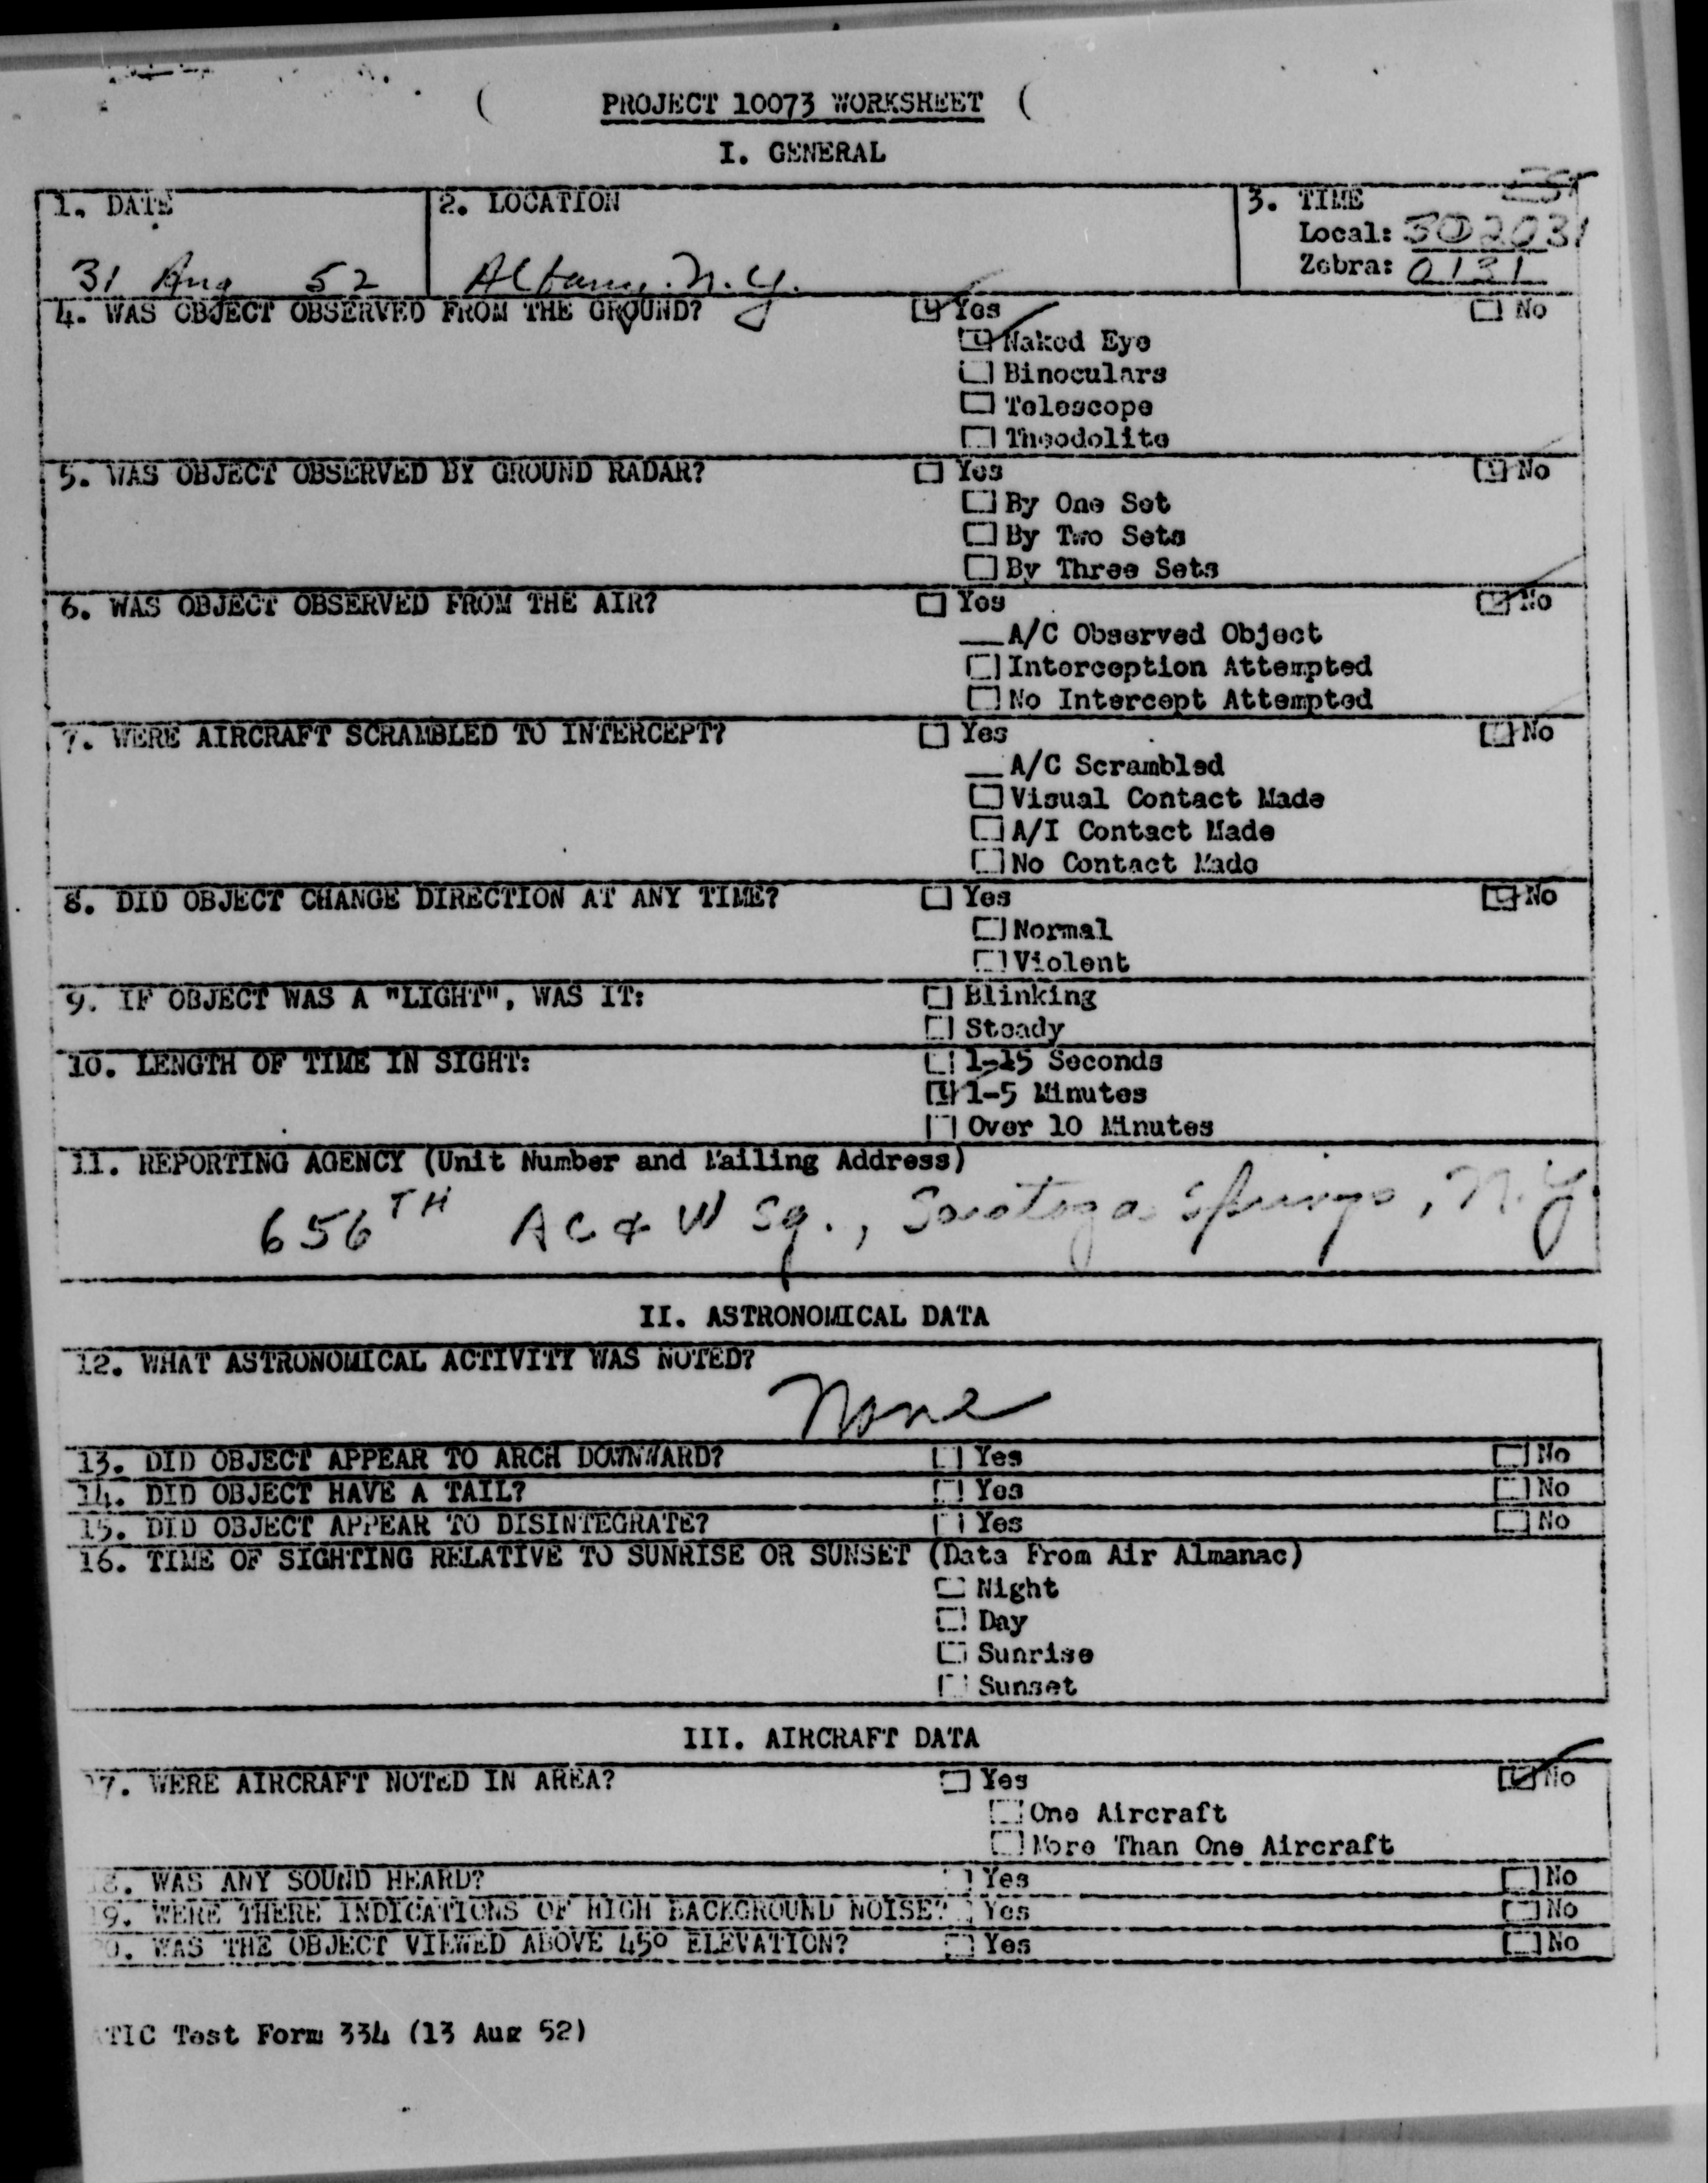 PROJECT 10073 WORKSHEET
I. GENERAL
1. DATE
2. LOCATION
3. TIME
Local: 302031
Zebra: 0131
31 Aug 52
Albany. N.Y.
4. WAS OBJECT OBSERVED FROM THE GROUND? Yes No
Naked Eye
Binoculars
Telescope
Theodolite
5. WAS OBJECT OBSERVED BY GROUND RADAR? Yes No
By One Set
By Two Sets
By Three Sets
6. WAS OBJECT OBSERVED FROM THE AIR? Yes No
A/C Observed Object
Interception Attempted
No Intercept Attempted
7. WERE AIRCRAFT SCRAMBLED TO INTERCEPT? Yes No
A/C Scrambled
Visual Contact Made
A/I Contact Made
No Contact Made
8. DID OBJECT CHANGE DIRECTION AT ANY TIME? Yes No
Normal
Violent
9. IF OBJECT WAS A "LIGHT", WAS IT: Blinking
Steady
10. LENGTH OF TIME IN SIGHT: 1-15 Seconds
1-5 Minutes
Over 10 Minutes
11. REPORTING AGENCY (Unit Number and Mailing Address)
656TH AC & W Sq., Saratoga Springs, N.Y.
II. ASTRONOMICAL DATA
12. WHAT ASTRONOMICAL ACTIVITY WAS NOTED?
None
13. DID OBJECT APPEAR TO ARCH DOWNWARD? Yes No
14. DID OBJECT HAVE A TAIL? Yes No
15. DID OBJECT APPEAR TO DISINTEGRATE? Yes No
16. TIME OF SIGHTING RELATIVE TO SUNRISE OR SUNSET (Data From Air Almanac)
Night
Day
Sunrise
Sunset
III. AIRCRAFT DATA
17. WERE AIRCRAFT NOTED IN AREA? Yes No
One Aircraft
More Than One Aircraft
8. WAS ANY SOUND HEARD? Yes No
9. WERE THERE INDICATIONS OF HIGH BACKGROUND NOISE? Yes No
0. WAS THE OBJECT VIEWED ABOVE 45° ELEVATION? Yes No
TIC Test Form 334 (13 Aug 52)